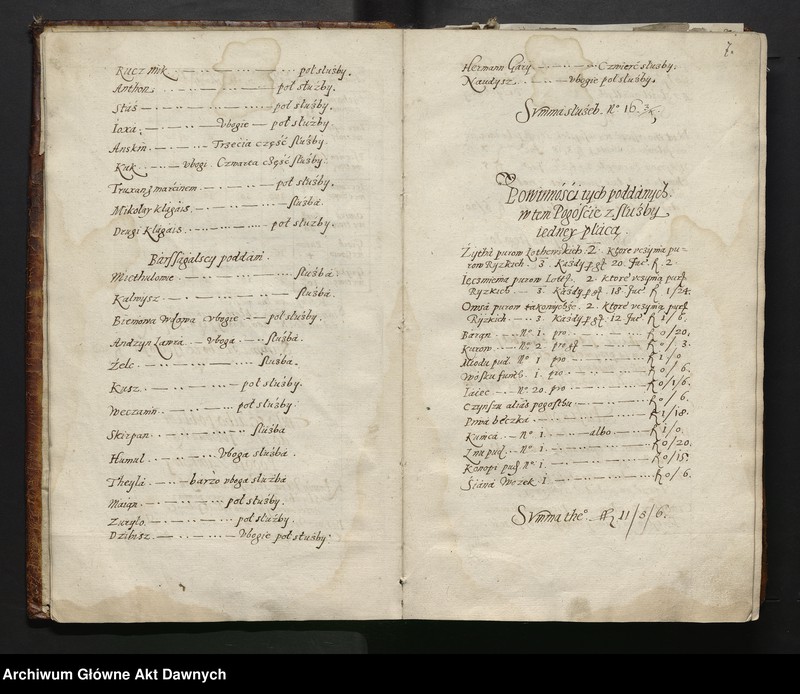 Rucz Mik — pół służby.
Anthon. — pół służby.
Staś — pół służby.
Joxa. — Vbogie — pół służby
Anskin. — Trzecia część służby.
Kuk — vbogi Czwarta część służby.
Truxanz marcinem — pół służby.
Mikołay Klagáis. — służbá.
Deági Klagáis — poł służby.
Barssigalscy poddáni.
Miethulowie — służbá.
Kálmysz. — służbá.
Biemowa Wdowa vbogie — poł służby.
Andrzyn Ławrá — vboga — służbá.
Żelc — służba.
Kusz. — poł służby.
Weczámi — poł służby.
Skirpan. — służbá
Humul. — Vboga służbá.
Theylá — barzo vboga służbá
Maiąn. — poł służby.
Zuryło. — poł służby.
Dzibisz. — Vbogie poł służby.
7.
Hermann Gáry — Czwierć służby.
Náudysz — vbogie poł służby.
Summa służeb. Nº 16 3/4.
Powinności tych poddánych.
w tem Pogoście z służby
iedney płacą.
Żythá purow Lothewskich. 2. ktore vczynią pu-
row Ryzkich. 3. Każdy p. gł. 20. fac. fl 2.
Ięczmieniá purow Loth. 2 ktore vczynią purł
Ryzkich — 3. Każdy p gł. 18. fac. fl 1/24.
Owsá purow takowychże. 2. ktore vczynią purł
Ryzkich — 3. Każdy p gł. 12 fac. fl 1/6.
Báran — Nº 1. pro — fl 0/20.
Kurow — Nº 2 pro gł — fl 0/3.
Miodu pud. Nº 1 pro — fl 1/0
Wosku funt. 1. pro — fl 0/6.
Iáiec — Nº 20. pro — fl 0/1/6.
Czynszu aliás pogosthu — fl 0/6.
Piwá beczká — fl 1/18.
Kunica — Nº 1. — albo — fl 1/0.
Lnu pud. Nº 1. — fl 0/20.
Konopi pud Nº 1. — fl 0/15.
Siáná Wozek 1. — fl 0/6.
Summa the. ffl 11/8/6.
Archiwum Główne Akt Dawnych